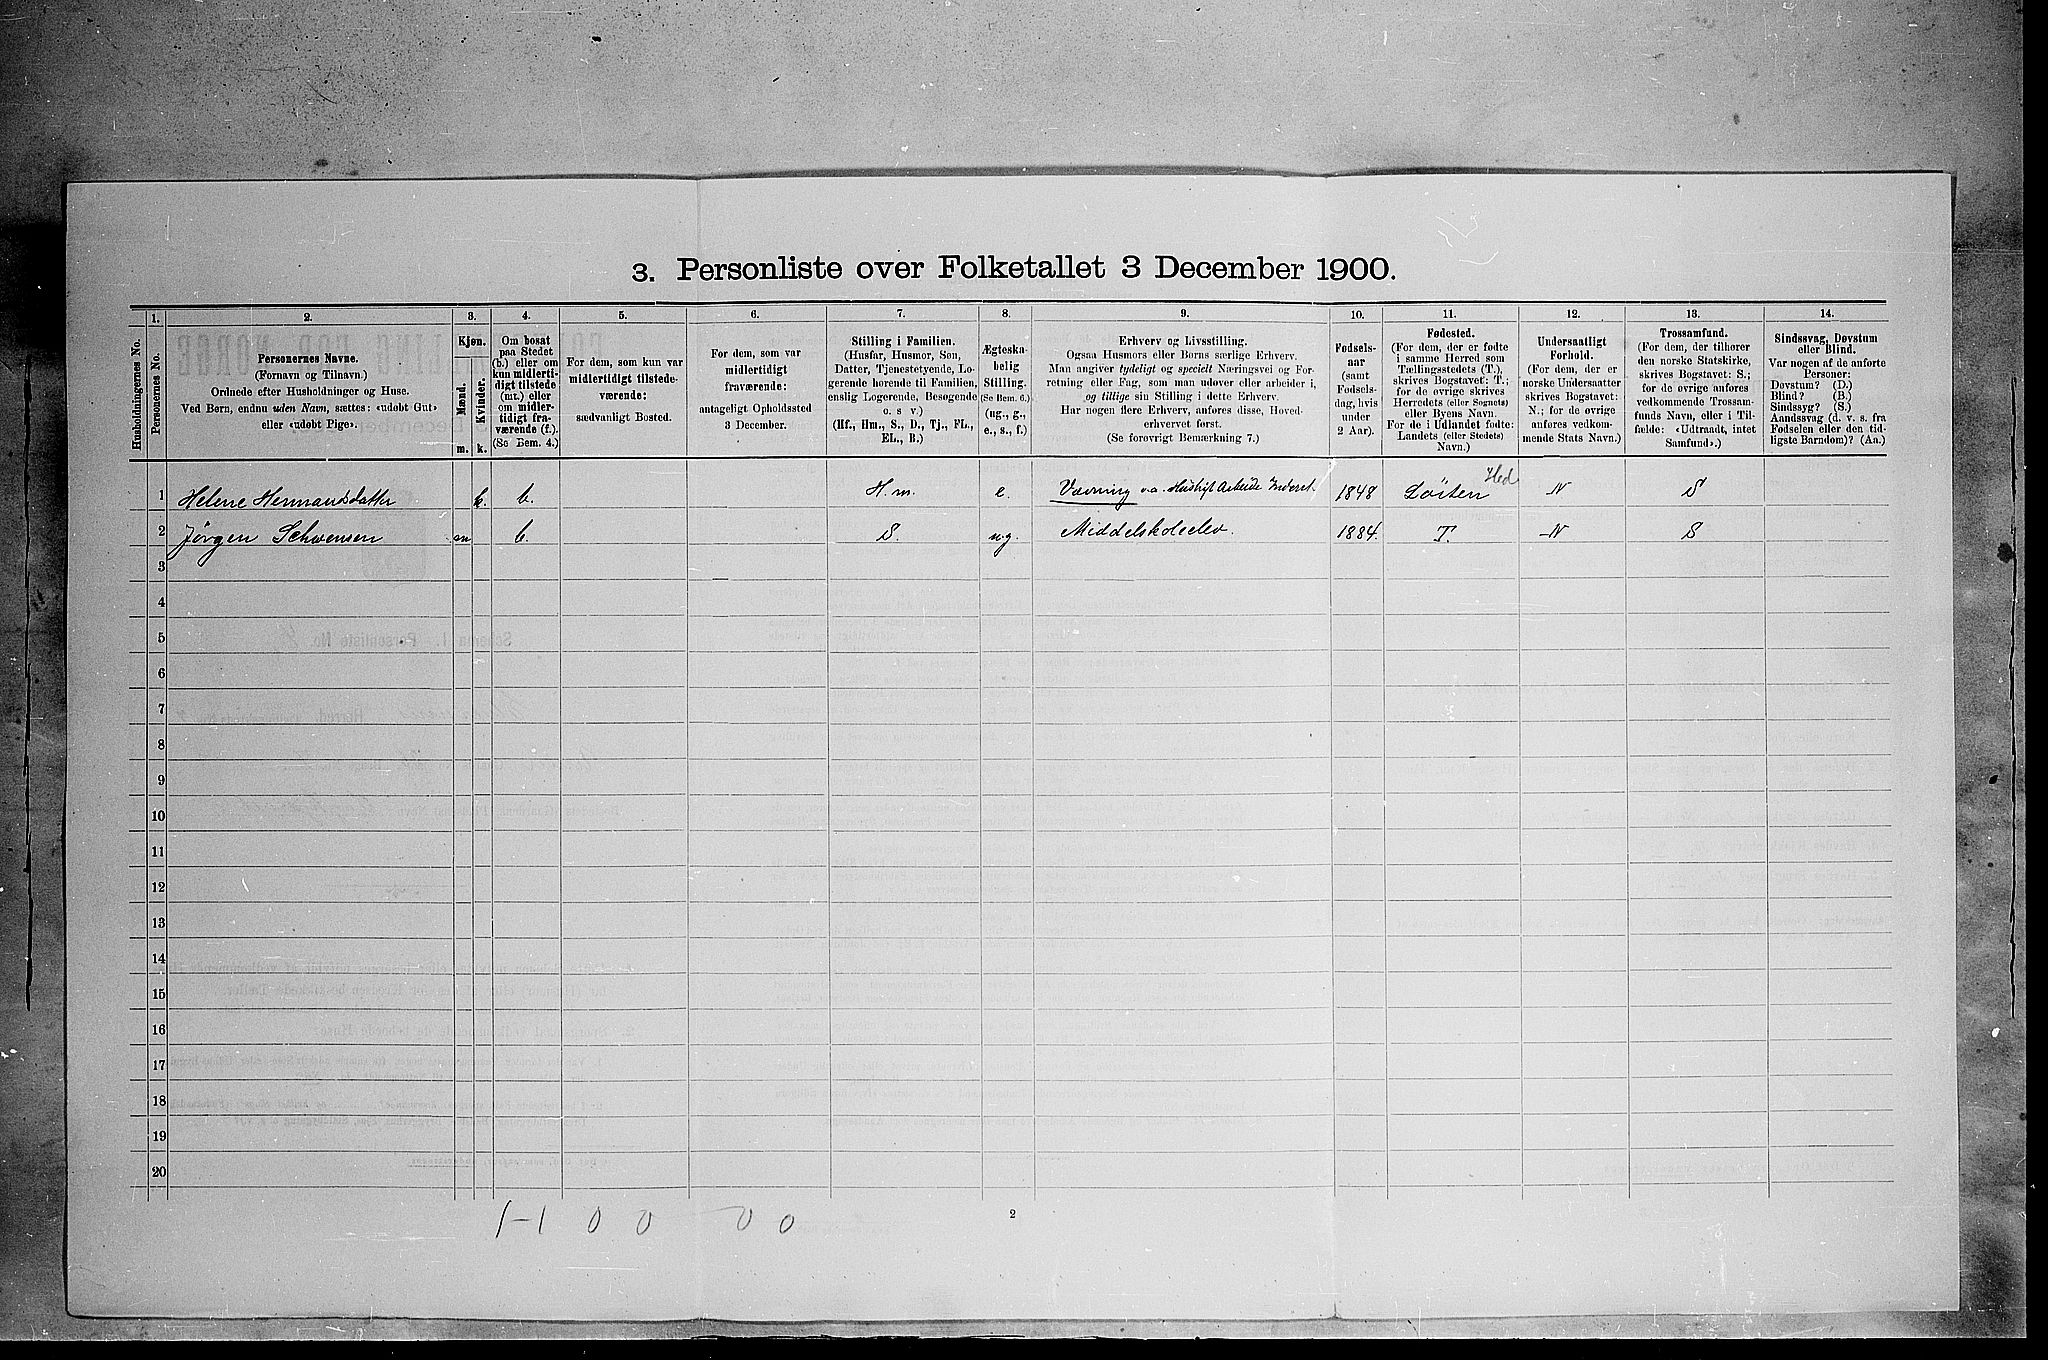 3. Personliste over Folketallet 3 December 1900.
Husholdningernes No.
1.
Personernes No.
2.
Personernes Navne.
(Fornavn og Tilnavn.)
Ordnede efter Husholdninger og Huse.
Ved Børn, endnu uden Navn, sættes: «udøbt Gut»
eller «udøbt Pige».
3.
Kjøn.
Mænd.
Kvinder.
m. k.
4.
Om bosat
paa Stedet
(b.) eller om
kun midlerti-
digt tilstede
(mt.) eller
om midler-
tidigt fra-
værende (f.).
(Se Bem. 4.)
5.
For dem, som kun var
midlertidigt tilstede-
værende:
sædvanligt Bosted.
6.
For dem, som var
midlertidigt
fraværende:
antageligt Opholdssted
3 December.
7.
Stilling i Familien.
(Husfar, Husmor, Søn,
Datter, Tjenestetyende, Lo-
gerende hørende til Familien,
enslig Logerende, Besøgende
o. s v.)
(Hf., Hm., S., D., Tj., FL.,
EL., B.)
8.
Ægteska-
belig
Stilling.
(Se Bem. 6.)
(ug., g.,
e., s., f.)
9.
Erhverv og Livsstilling.
Ogsaa Husmors eller Børns særlige Erhverv.
Man angiver tydeligt og specielt Næringsvei og For-
retning eller Fag, som man udøver eller arbeider i,
og tillige sin Stilling i dette Erhverv.
Har nogen flere Erhverv, anføres disse, Hoved-
erhvervet først.
(Se forøvrigt Bemærkning 7.)
10.
Fødsels-
aar
(samt
Fødsels-
dag, hvis
under
2 Aar).
11.
Fødested.
(For dem, der er fødte
i samme Herred som
Tællingsstedets (T.),
skrives Bogstavet: T.;
for de øvrige skrives
Herredets (eller Sognets)
eller Byens Navn.
For de i Udlandet fødte:
Landets (eller Stedets)
Navn.)
12.
Undersaatligt
Forhold.
(For dem, der er
norske Undersaatter
skrives Bogstavet:
N.; for de øvrige
anføres vedkom-
mende Stats Navn.)
13.
Trossamfund.
(For dem, der tilhører
den norske Statskirke,
skrives Bogstavet: S.;
for de øvrige anføres
vedkommende Trossam-
funds Navn, eller i Til-
fælde: «Udtraadt, intet
Samfund».)
14.
Sindssvag, Døvstum
eller Blind.
Var nogen af de anførte
Personer:
Døvstum? (D.)
Blind? (B.)
Sindssyg? (S.)
Aandssvag (d. v. s. fra
Fødselen eller den tid-
ligste Barndom)? (Aa.)
1 Helene Hermandsdatter k. b. H.m. e. Vævning o.a. Husligt Arbeide 1848 Löiten Hed N S
2 Jørgen Schwensen m b. S. u.g. Middelskoleelev. 1884. T. N S
3
4
5
6
7
8
9
10
11
12
13
14
15
16
17
18
19
20
1-1 0 0 0 0
2